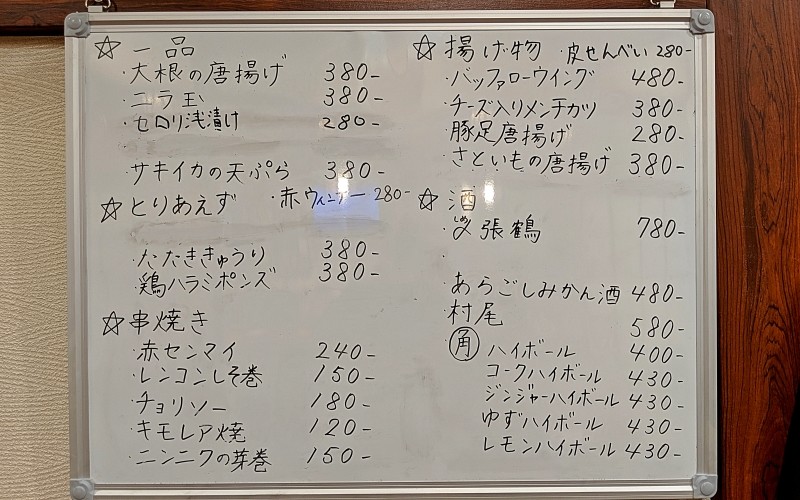 ☆ 一品
・大根の唐揚げ 380-
・ニラ玉 380-
・セロリ浅漬け 280-
サキイカの天ぷら 380-
☆ とりあえず ・赤ウィンナー 280-
・たたききゅうり 380-
・鶏ハラミポンズ 380-
☆ 串焼き
・赤センマイ 240-
・レンコンしそ巻 150-
・チョリソー 180-
・キモレア焼 120-
・ニンニクの芽巻 150-
☆ 揚げ物 ・皮せんべい 280-
・バッファローウイング 480-
・チーズ入りメンチカツ 380-
・豚足唐揚げ 280-
・さといもの唐揚げ 380-
☆ 酒
しめ
・〆張鶴 780-
・あらごしみかん酒 480-
・村尾 580-
角 ハイボール 400-
コークハイボール 430-
ジンジャーハイボール 430-
ゆずハイボール 430-
レモンハイボール 430-